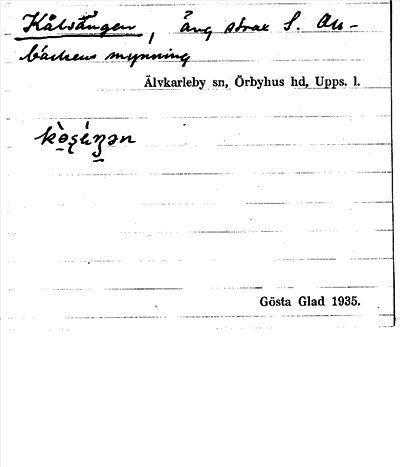 Kålsängen, äng strax S. Ås-
bäckens mynning
Älvkarleby sn, Örbyhus hd, Upps. l.
Gösta Glad 1935.